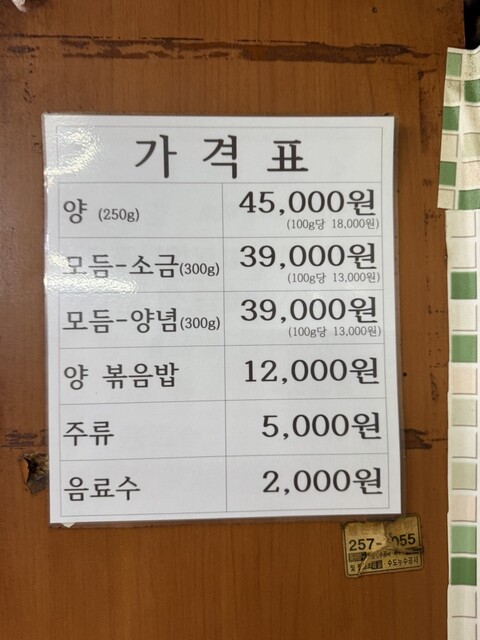 가 격 표
양 (250g) 45,000원
(100g당 18,000원)
모듬-소금(300g) 39,000원
(100g당 13,000원)
모듬-양념(300g) 39,000원
(100g당 13,000원)
양 볶음밥 12,000원
주류 5,000원
음료수 2,000원
257- 055
수도누수공사